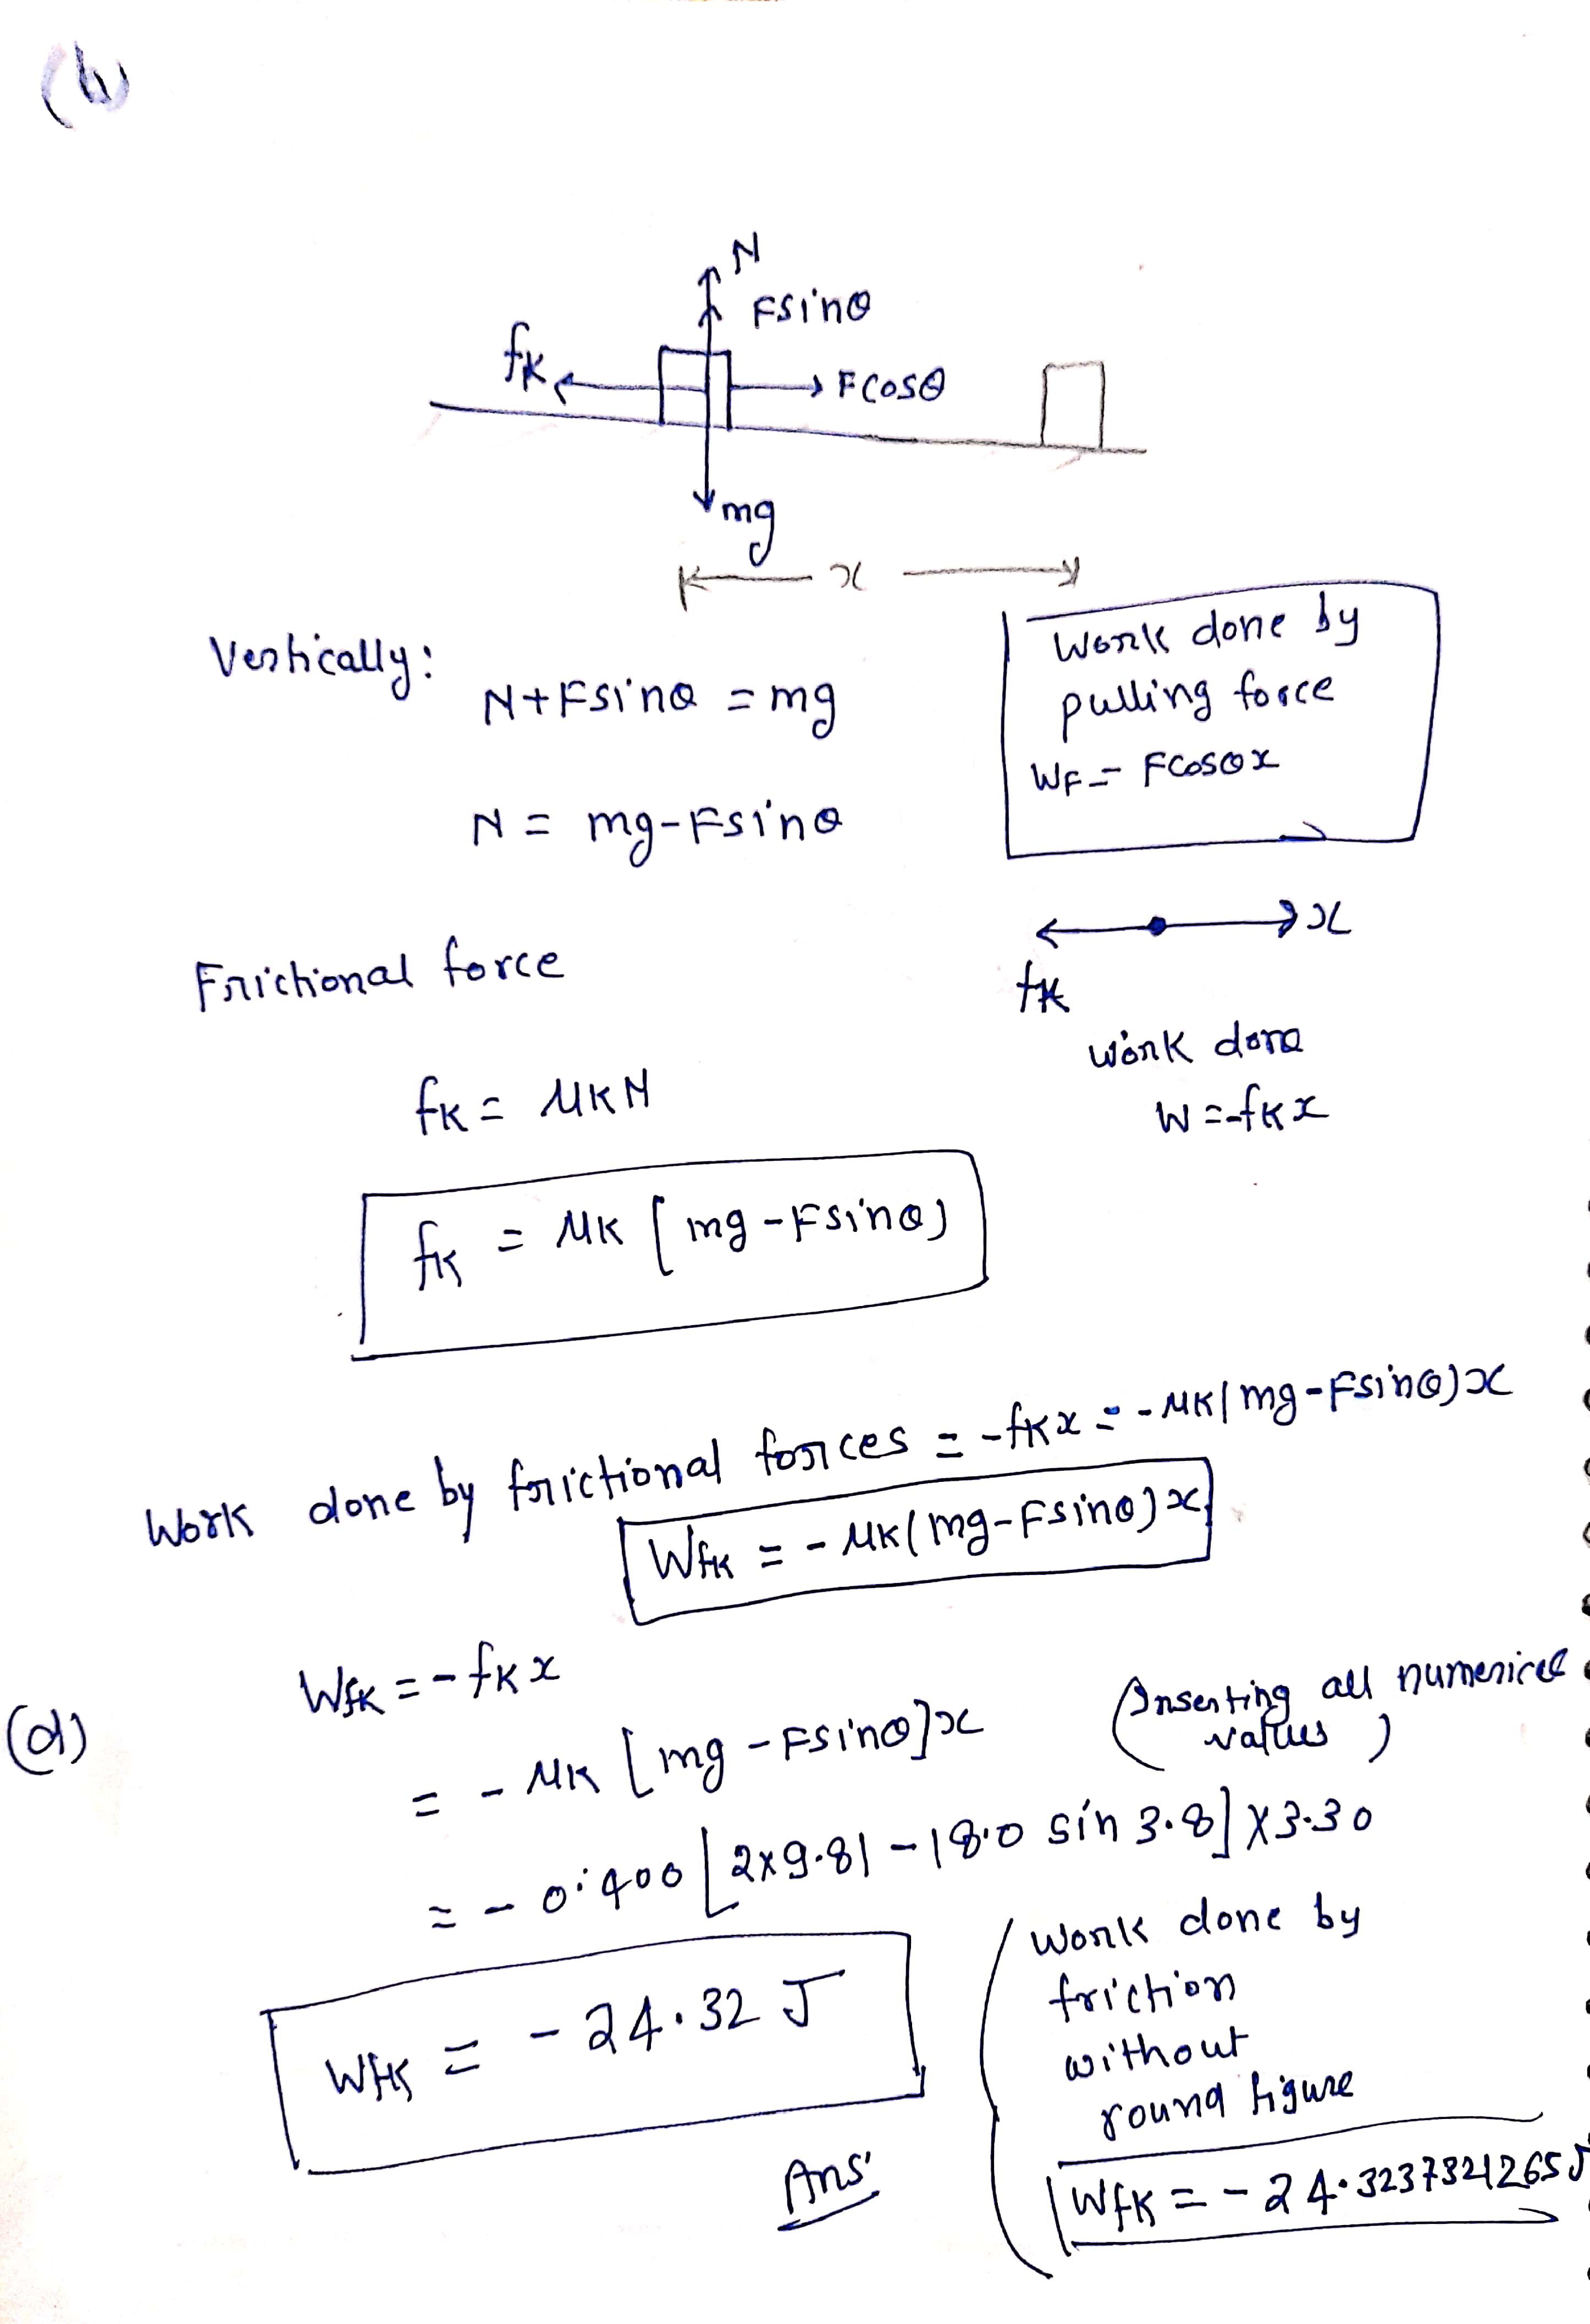 (b)
N
Fsinθ
fk
Fcosθ
mg
x
Vertically:
N+Fsinθ = mg
N = mg-Fsinθ
Work done by
pulling force
WF = Fcosθx
x
fk
work done
W = -fkx
Frictional force
fk = μkN
fk = μk [mg-Fsinθ)
Work done by frictional forces = -fkx = -μk(mg-Fsinθ)x
Wfk = -μk(mg-Fsinθ)x
(d)
Wfk = -fkx
= - μk [mg-Fsinθ]x
(Inserting all numerical
values)
= - 0.400 [2x9.81-18.0 sin 3.8] x3.30
Wfk = - 24.32 J
Ans.
(Work done by
friction
without
round figure
Wfk = - 24.3237321265 J